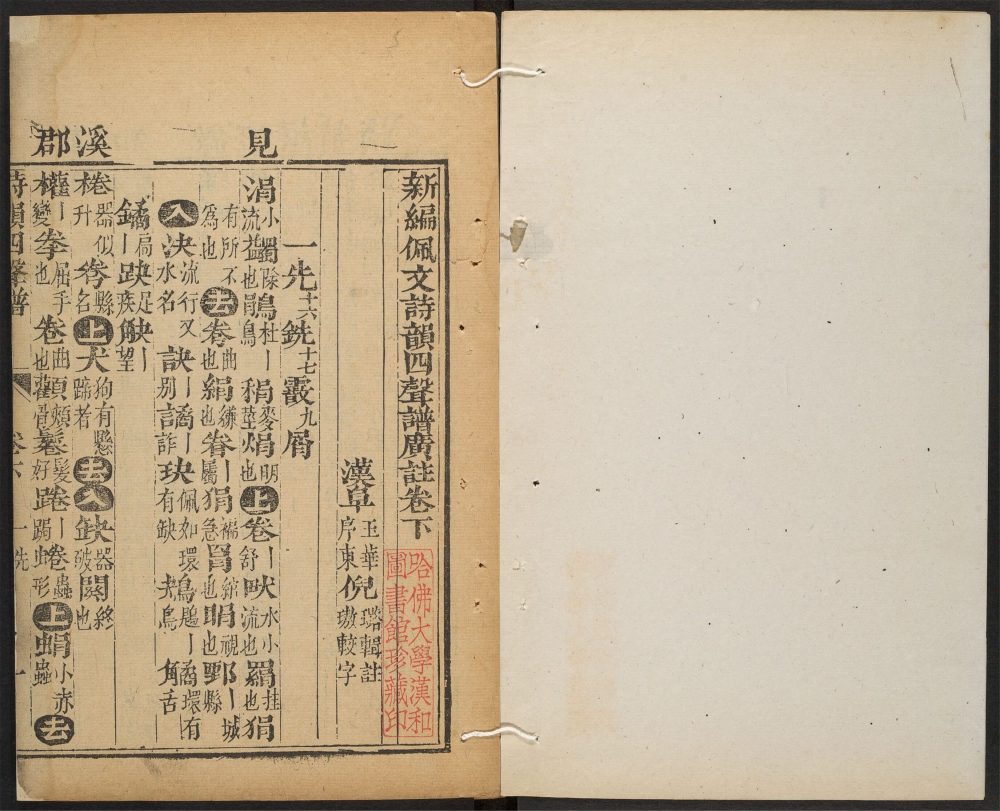 見
溪
郡
新編佩文詩韻四聲譜廣註卷下
漢阜 玉華 序東 倪 璐輯註 璈較字
哈佛大學漢和圖書館珍藏印
一先 十六銑 十七霰 九屑
涓 小流 蠲 除也 鵑 杜丨鳥 稍 麥莖 焆 明也 上 卷 丨舒 畎 水小流也 羂 挂也 狷
有所不為也 去 弮 曲也 絹 縑也 眷 丨屬 狷 褊急 罥 綰也 睊 視也 鄄 丨城縣
入 決 流行又水名 訣 丨別 譎 丨詐 玦 佩如環有缺 鴂 鶗丨鳥 觼 環有舌
鐍 扃丨 趹 足疾 觖 丨望
棬 器似升 弮 縣名 上 犬 狗有懸蹄者 去 入 缺 器破 闋 終也
權 丨變 拳 屈手也 卷 曲也 顴 頰骨 鬈 髮好 踡 丨跼 蜷 蟲形 上 蜎 小赤蟲 去
詩韻四聲譜 卷六 一先 一